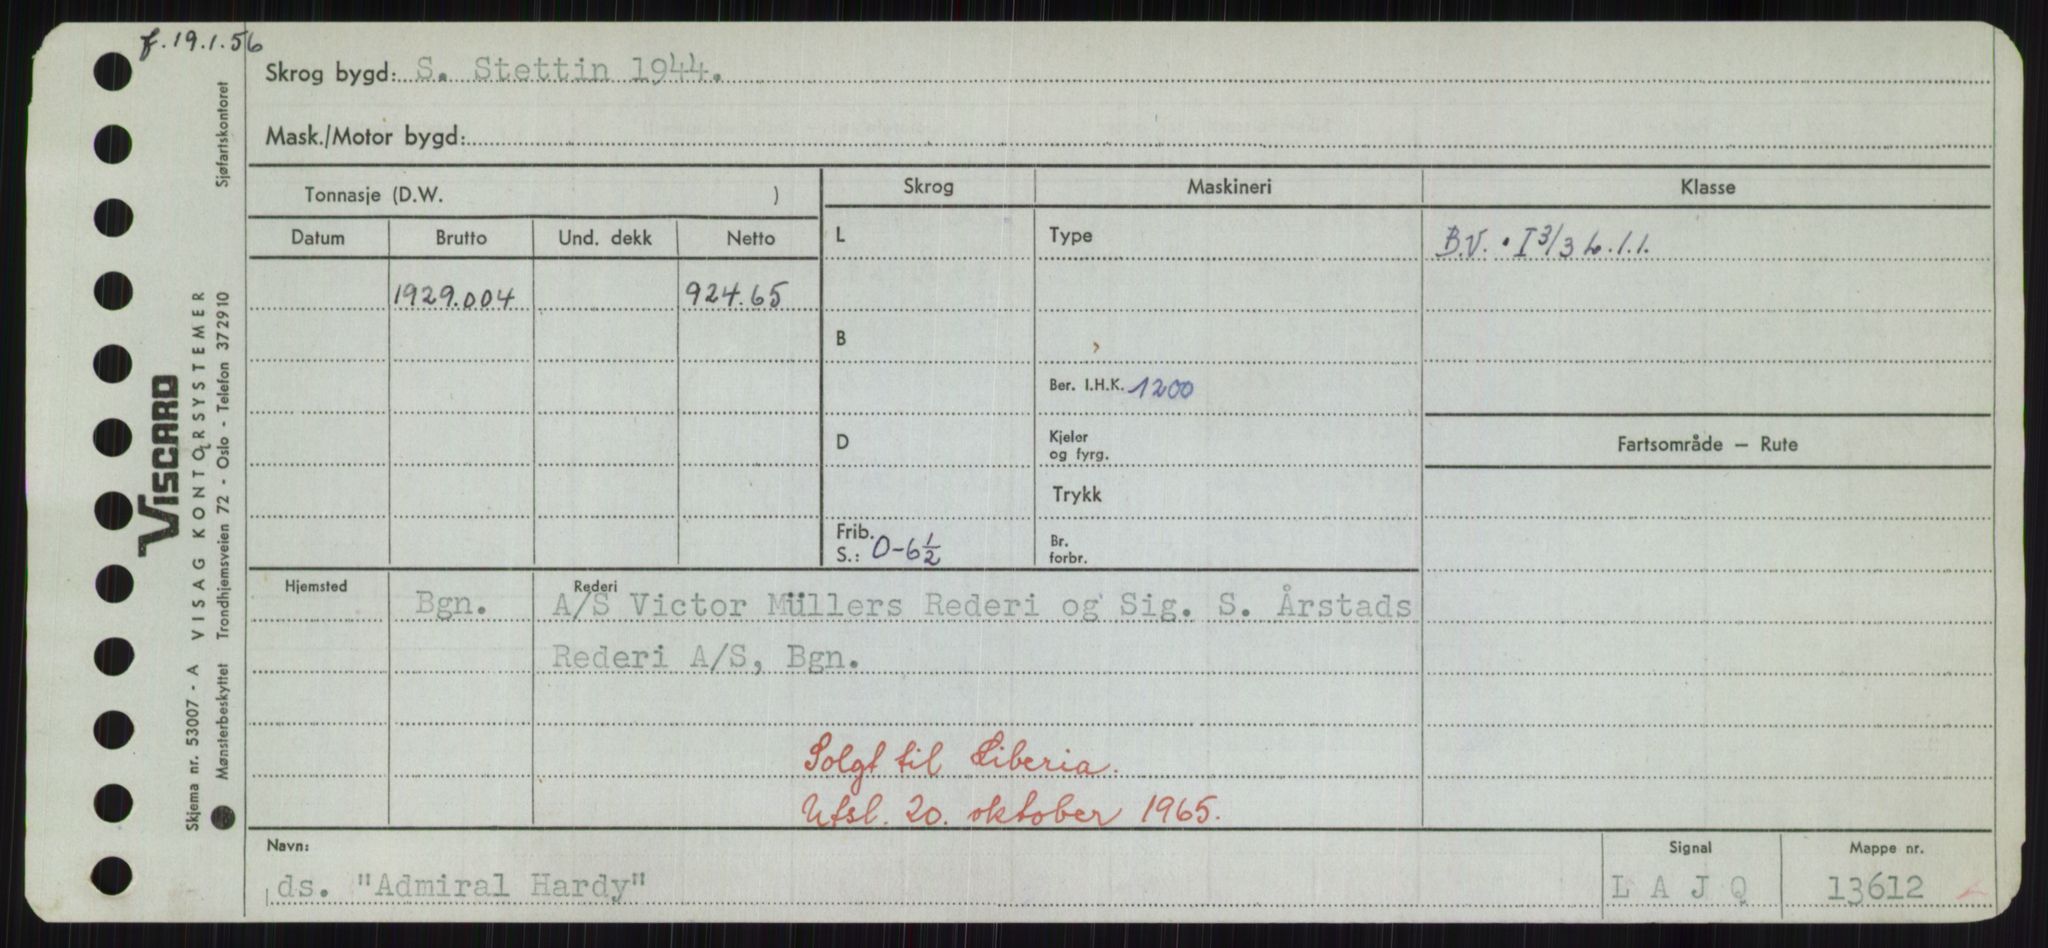 f. 19.1.56
Skrog bygd: S. Stettin 1944.
Mask./Motor bygd:
Tonnasje (D.W. )
Skrog
Maskineri
Klasse
Datum
Brutto
Und. dekk
Netto
L
Type
B.V. • I 3/3 L.1.1.
1929.004
924.65
B
Ber. I.H.K. 1200
D
Kjeler
og fyrg.
Fartsområde — Rute
Trykk
Frib.
S.: 0-6½
Br.
forbr.
Hjemsted
Bgn.
Rederi
A/S Victor Müllers Rederi og Sig. S. Årstads
Rederi A/S, Bgn.
Solgt til Liberia.
Utsl. 20. oktober 1965.
Navn:
ds. "Admiral Hardy"
Signal
L A J Q
Mappe nr.
13612
Skjema nr. 53007 - A VISAG KONTORSYSTEMER
Mønsterbeskyttet Trondhjemsveien 72 - Oslo - Telefon 372910
Sjøfartskontoret
VISCARD